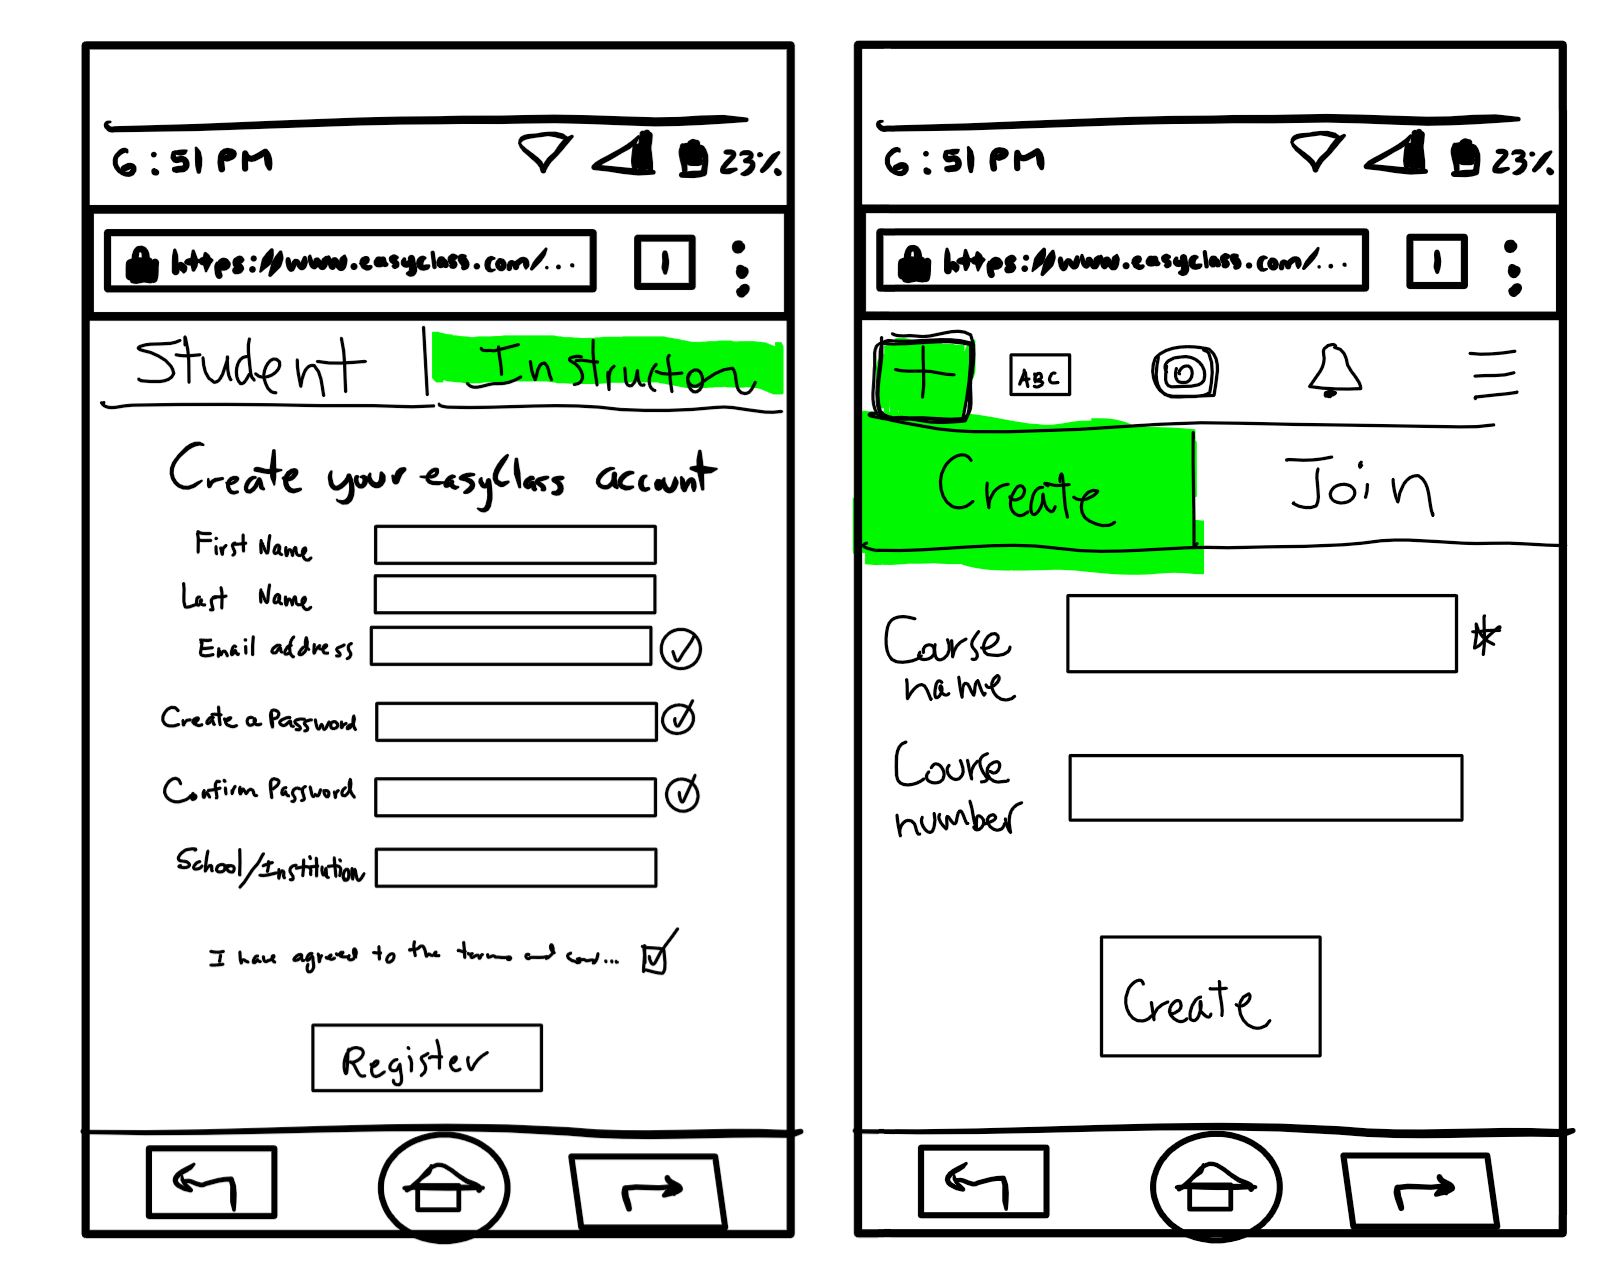 6:51 PM 23%
https://www.easyclass.com/... 1
Student Instructor
Create your easyClass account
First Name
Last Name
Email address
Create a Password
Confirm Password
School/Institution
I have agreed to the terms and con...
Register
6:51 PM 23%
https://www.easyclass.com/... 1
+ ABC
Create Join
Course name *
Course number
Create